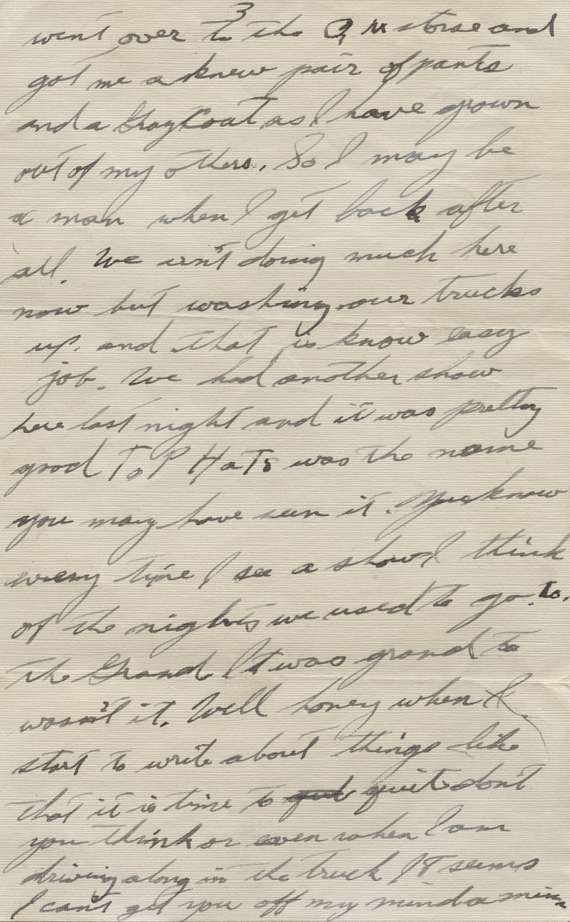 3
went over to the Q M store and
got me a knew pair of pants
and a Gray Coat as I have grown
out of my others. So I may be
a man when I get back after
all. We isn't doing much here
now but washing our trucks
up. and that is know easy
job. We had another show
here last night and it was pretty
good ToP HaTs was the name
you may have seen it. You know
every time I see a show I think
of the nights we used to go to.
the Grand It was grand to
wasn't it. Well honey when I
start to write about things like
that it is time to quit don't
you think or even when I am
driving along in the truck IT seems
I can't get you off my mind a minu